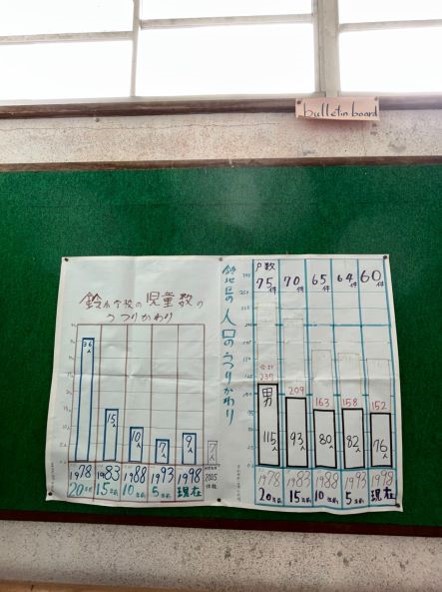 bulletin board
鈴小学校の児童数の
うつりかわり
15人
10人
7人
9人
1978 1983 1988 1993 1998
20年前 15年前 10年前 5年前 現在
2005
人口のうつりかわり
戸数
75件 70件 65件 64件 60件
209 163 158 152
男
115人 93人 80人 82人 76人
1978 1983 1988 1993 1998
20年前 15年前 10年前 5年前 現在